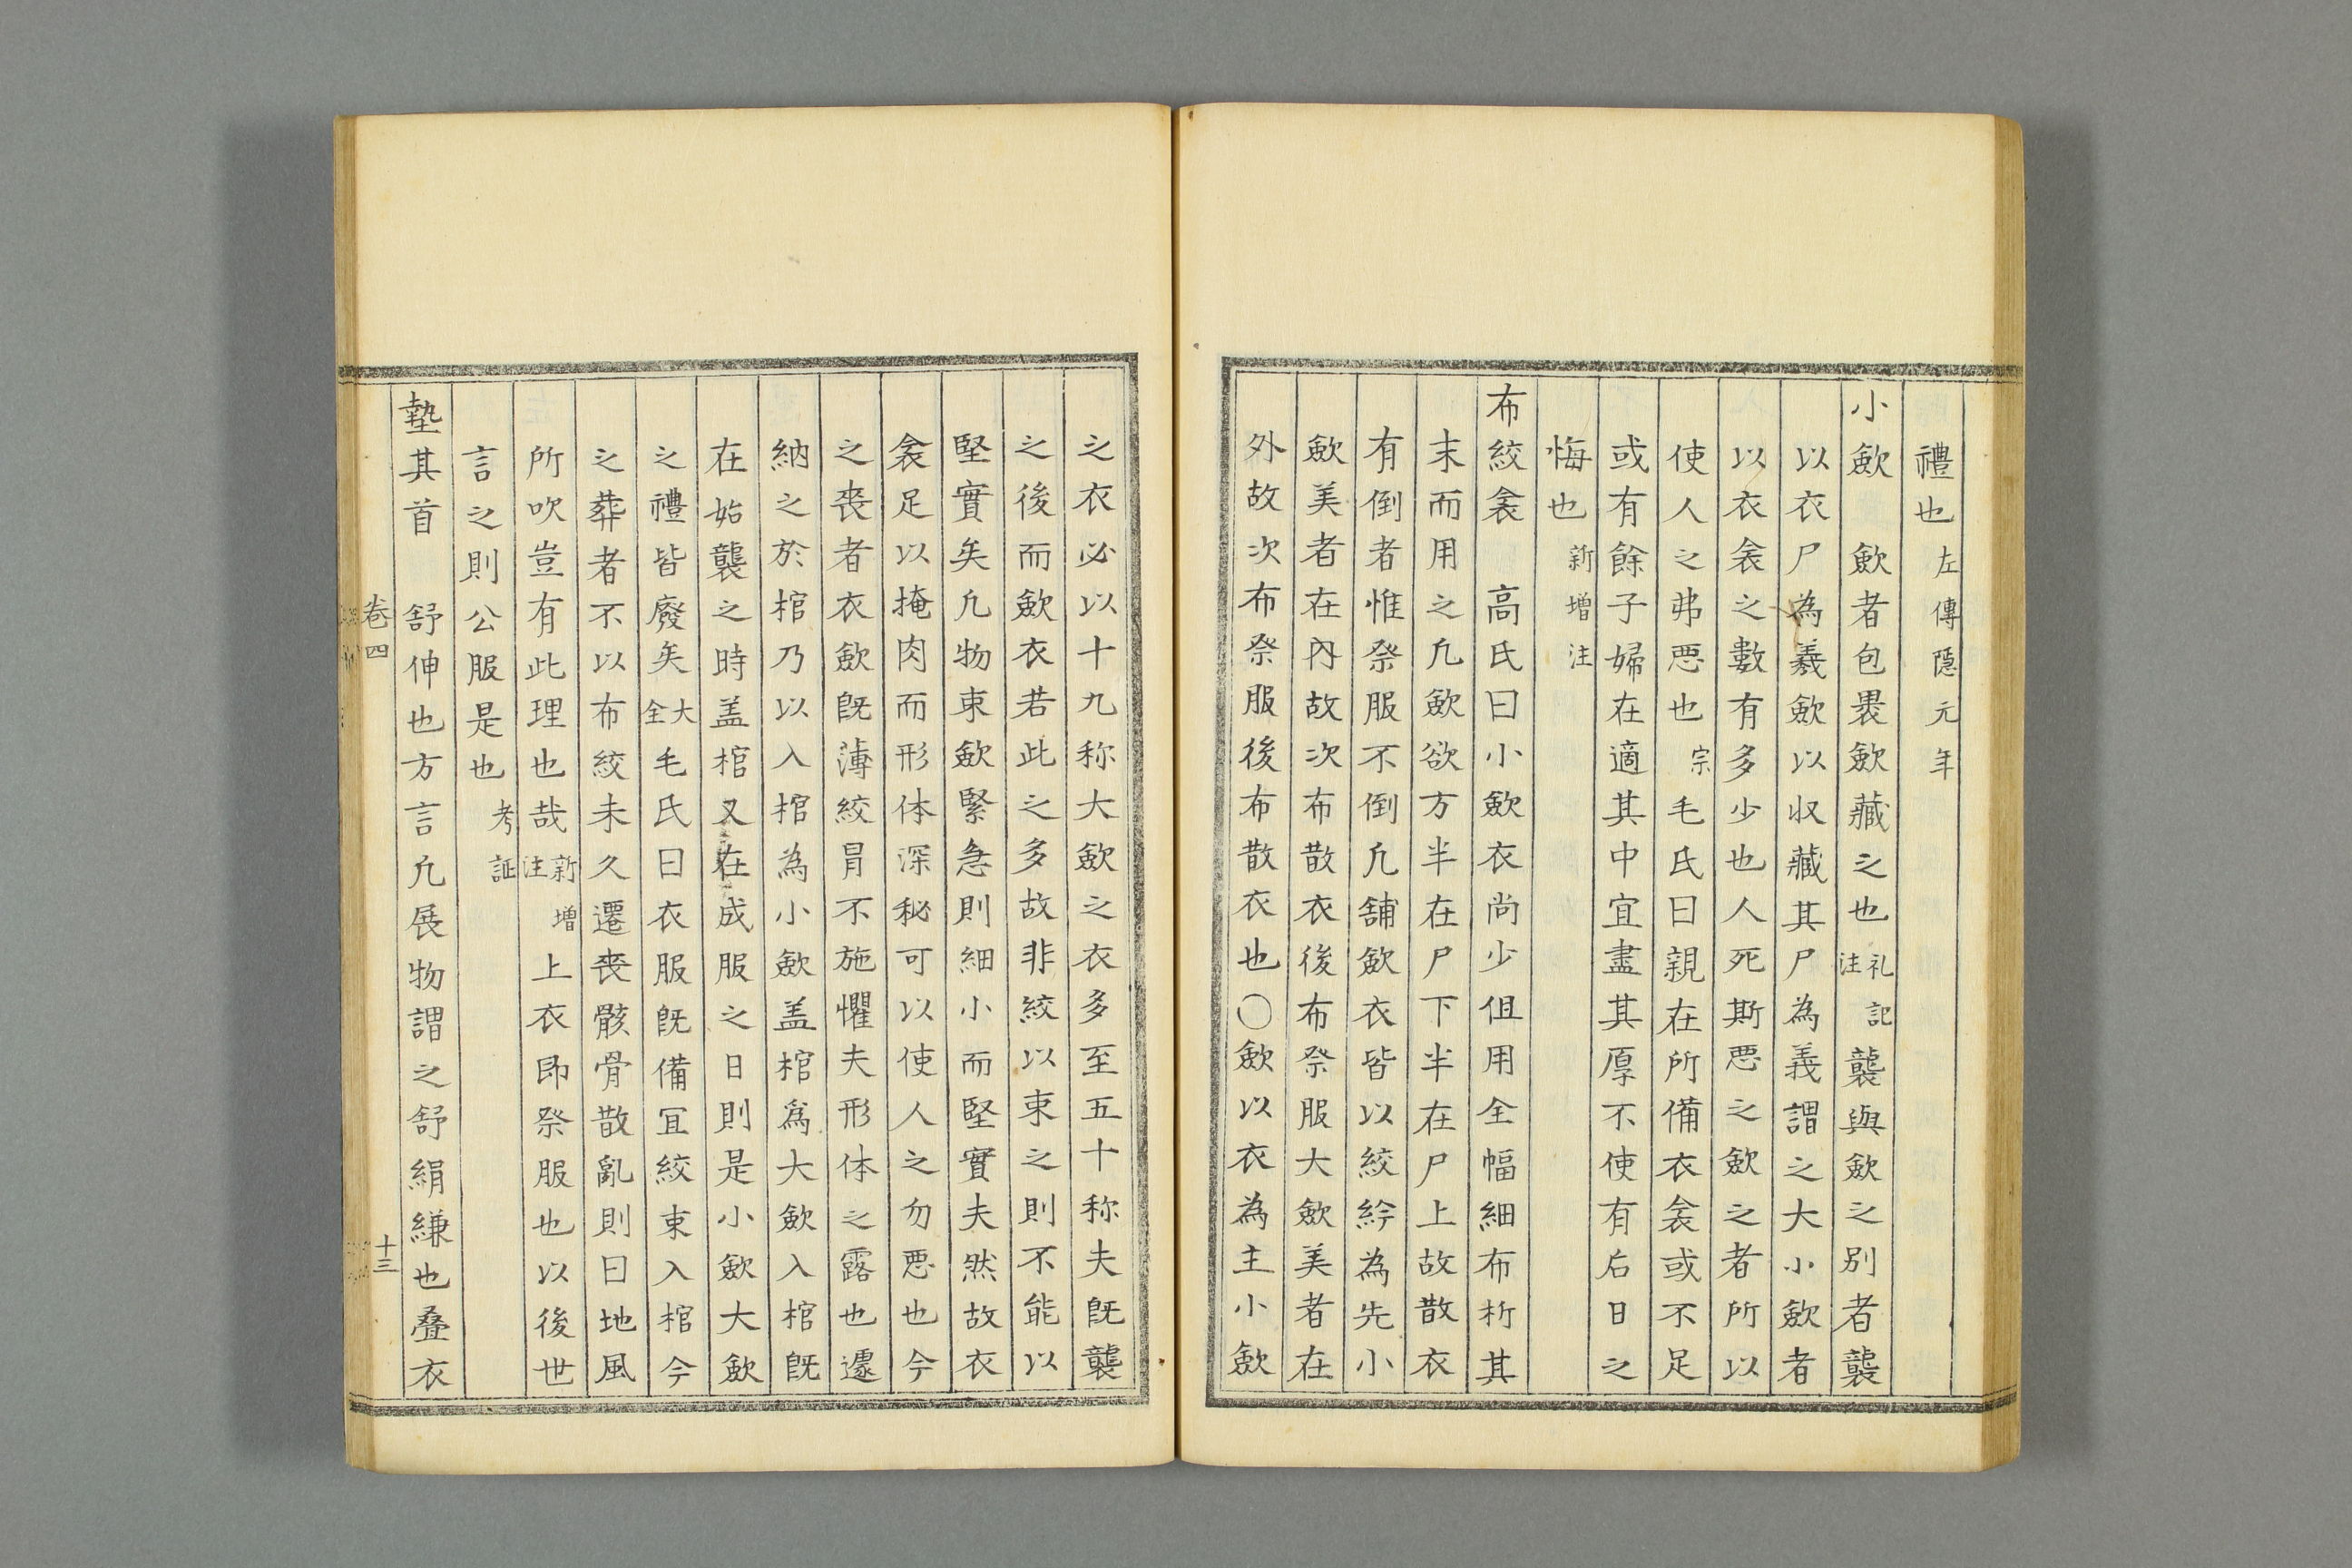 禮也左傳隱元年
小歛　歛者包褁歛藏之也礼記注襲與歛之别者襲
以衣尸為義歛以収藏其尸為義謂之大小歛者
以衣衾之數有多少也人死斯悪之歛之者所以
使人之弗悪也宗毛氏曰親在所備衣衾或不足
或有餘子婦在適其中宜盡其厚不使有后日之
悔也新增注
布絞衾　高氏曰小歛衣尚少但用全幅細布析其
末而用之凢歛欲方半在尸下半在尸上故散衣
有倒者惟祭服不倒凢舖歛衣皆以絞紟為先小
歛美者在內故次布散衣後布祭服大歛美者在
外故次布祭服後布散衣也〇歛以衣為主小歛
之衣必以十九称大歛之衣多至五十称夫旣襲
之後而歛衣若此之多故非絞以束之則不能以
堅實矣凢物束歛緊急則細小而堅實夫然故衣
衾足以掩肉而形体深秘可以使人之勿悪也今
之喪者衣歛旣薄絞冐不施懼夫形体之露也遽
納之於棺乃以入棺為小歛盖棺爲大歛入棺旣
在始襲之時盖棺又在成服之日則是小歛大歛
之禮皆廢矣大全毛氏曰衣服旣備冝絞束入棺今
之葬者不以布絞未久遷喪骸骨散亂則曰地風
所吹豈有此理也哉新增注上衣即祭服也以後世
言之則公服是也考証
墊其首　舒伸也方言凢展物謂之舒絹縑也叠衣
卷四
十三